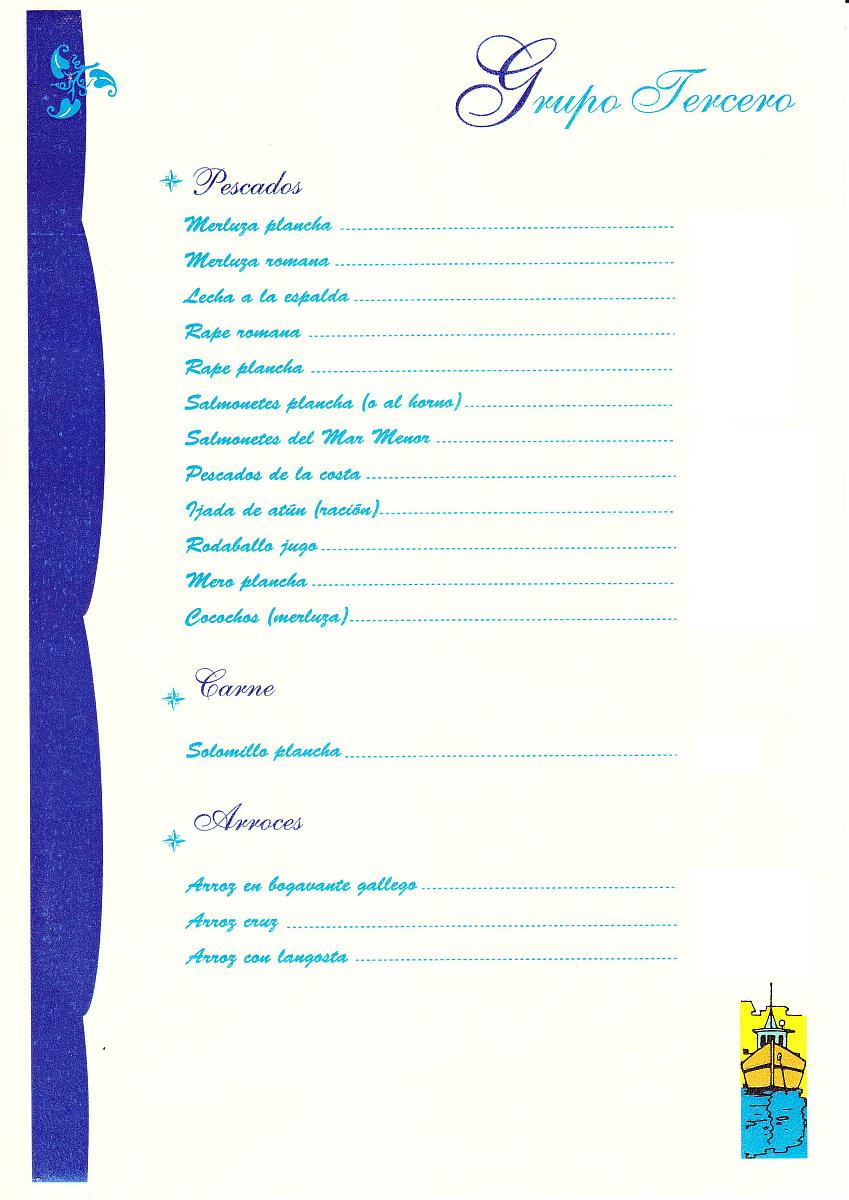 Grupo Tercero
Pescados
Merluza plancha
Merluza romana
Lecha a la espalda
Rape romana
Rape plancha
Salmonetes plancha (o al horno)
Salmonetes del Mar Menor
Pescados de la costa
Ijada de atún (ración)
Rodaballo jugo
Mero plancha
Cocochos (merluza)
Carne
Solomillo plancha
Arroces
Arroz en bogavante gallego
Arroz cruz
Arroz con langosta